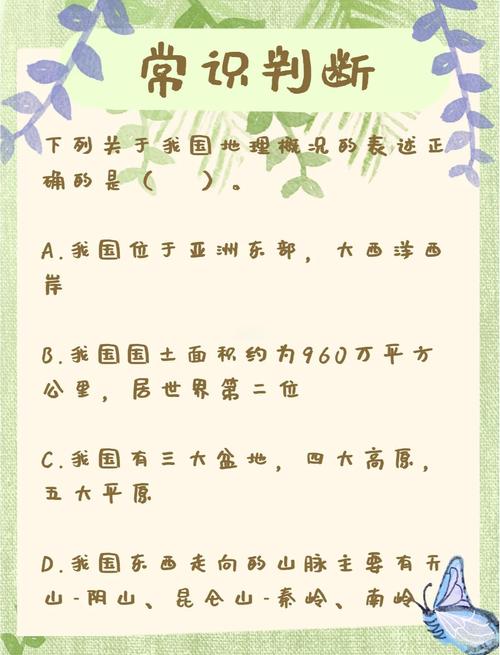 常识判断
下列关于我国地理概况的表述正
确的是（　　）。
A.我国位于亚洲东部，大西洋西
岸
B.我国国土面积约为960万平方
公里，居世界第二位
C.我国有三大盆地，四大高原，
五大平原
D.我国东西走向的山脉主要有天
山-阴山、昆仑山-秦岭、南岭